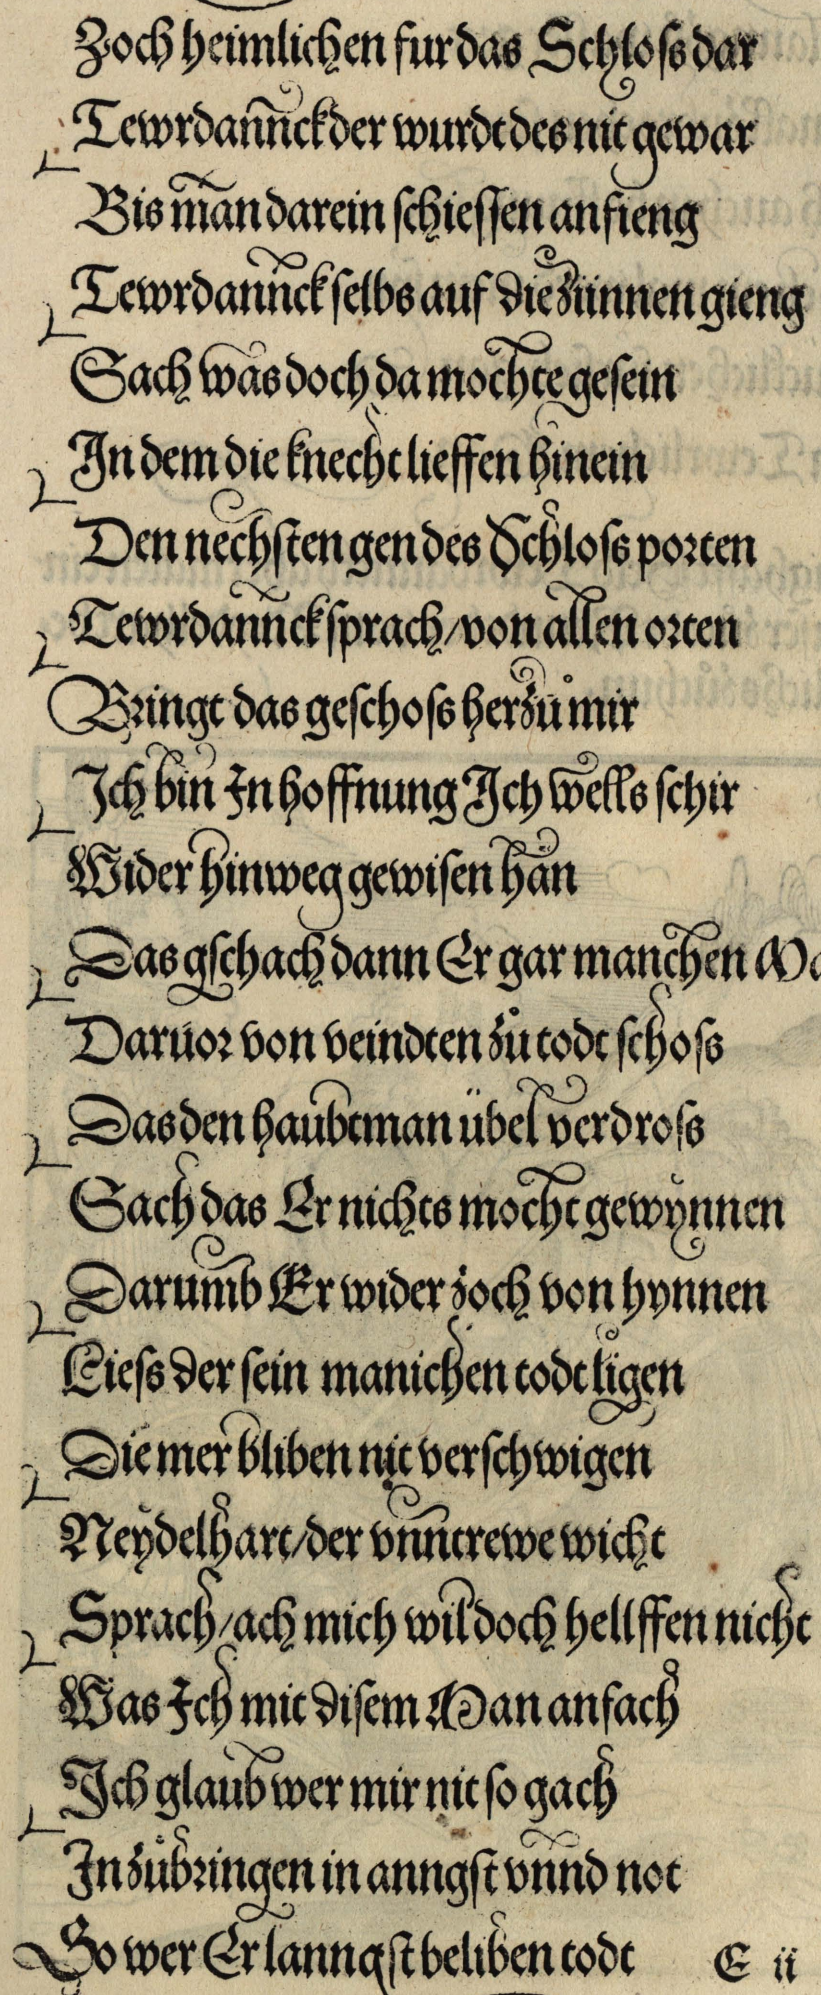 Zoch heimlichen fur das Schloſs dar
Tewrdannck der wurdt des nit gewar
Bis man darein ſchieſſen anfieng
Tewrdannck ſelbs auf die zünnen gieng
Sach was doch da mochte geſein
In dem die knecht lieffen hinein
Den nechſten gen des Schloſs porten
Tewrdannck ſprach/von allen orten
Bringt das geſchoſs her zů mir
Ich bin In hoffnung Ich wells ſchir
Wider hinweg gewiſen hän
Das gſchach dann Er gar manchen
Daruor von veindten zů todt ſchoſs
Das den haubtman übel verdroſs
Sach das Er nichts mocht gewynnen
Darumb Er wider zoch von hynnen
Lieſs der ſein manichen todt ligen
Die mer bliben nit verſchwigen
Neydelhart/der vnntrewe wicht
Sprach/ach mich wil doch hellffen nicht
Was Ich mit diſem Man anfach
Ich glaub wer mir nit ſo gach
In zůbringen in anngſt vnnd not
So wer Er lanngſt beliben todt E ii